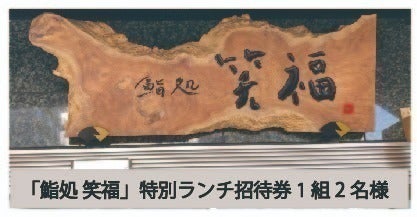 鮨処 笑福
「鮨処 笑福」特別ランチ招待券1組2名様